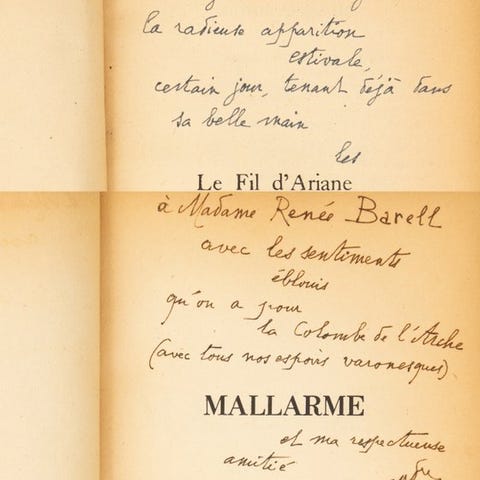 la radieuse apparition
estivale,
certain jour, tenant déjà dans
sa belle main
les
Le Fil d'Ariane
à Madame Renée Barell
avec les sentiments
éblouis
qu'on a pour
la Colombe de l'Arche
(avec tous nos espoirs varonesques)
MALLARME
et ma respectueuse
amitié